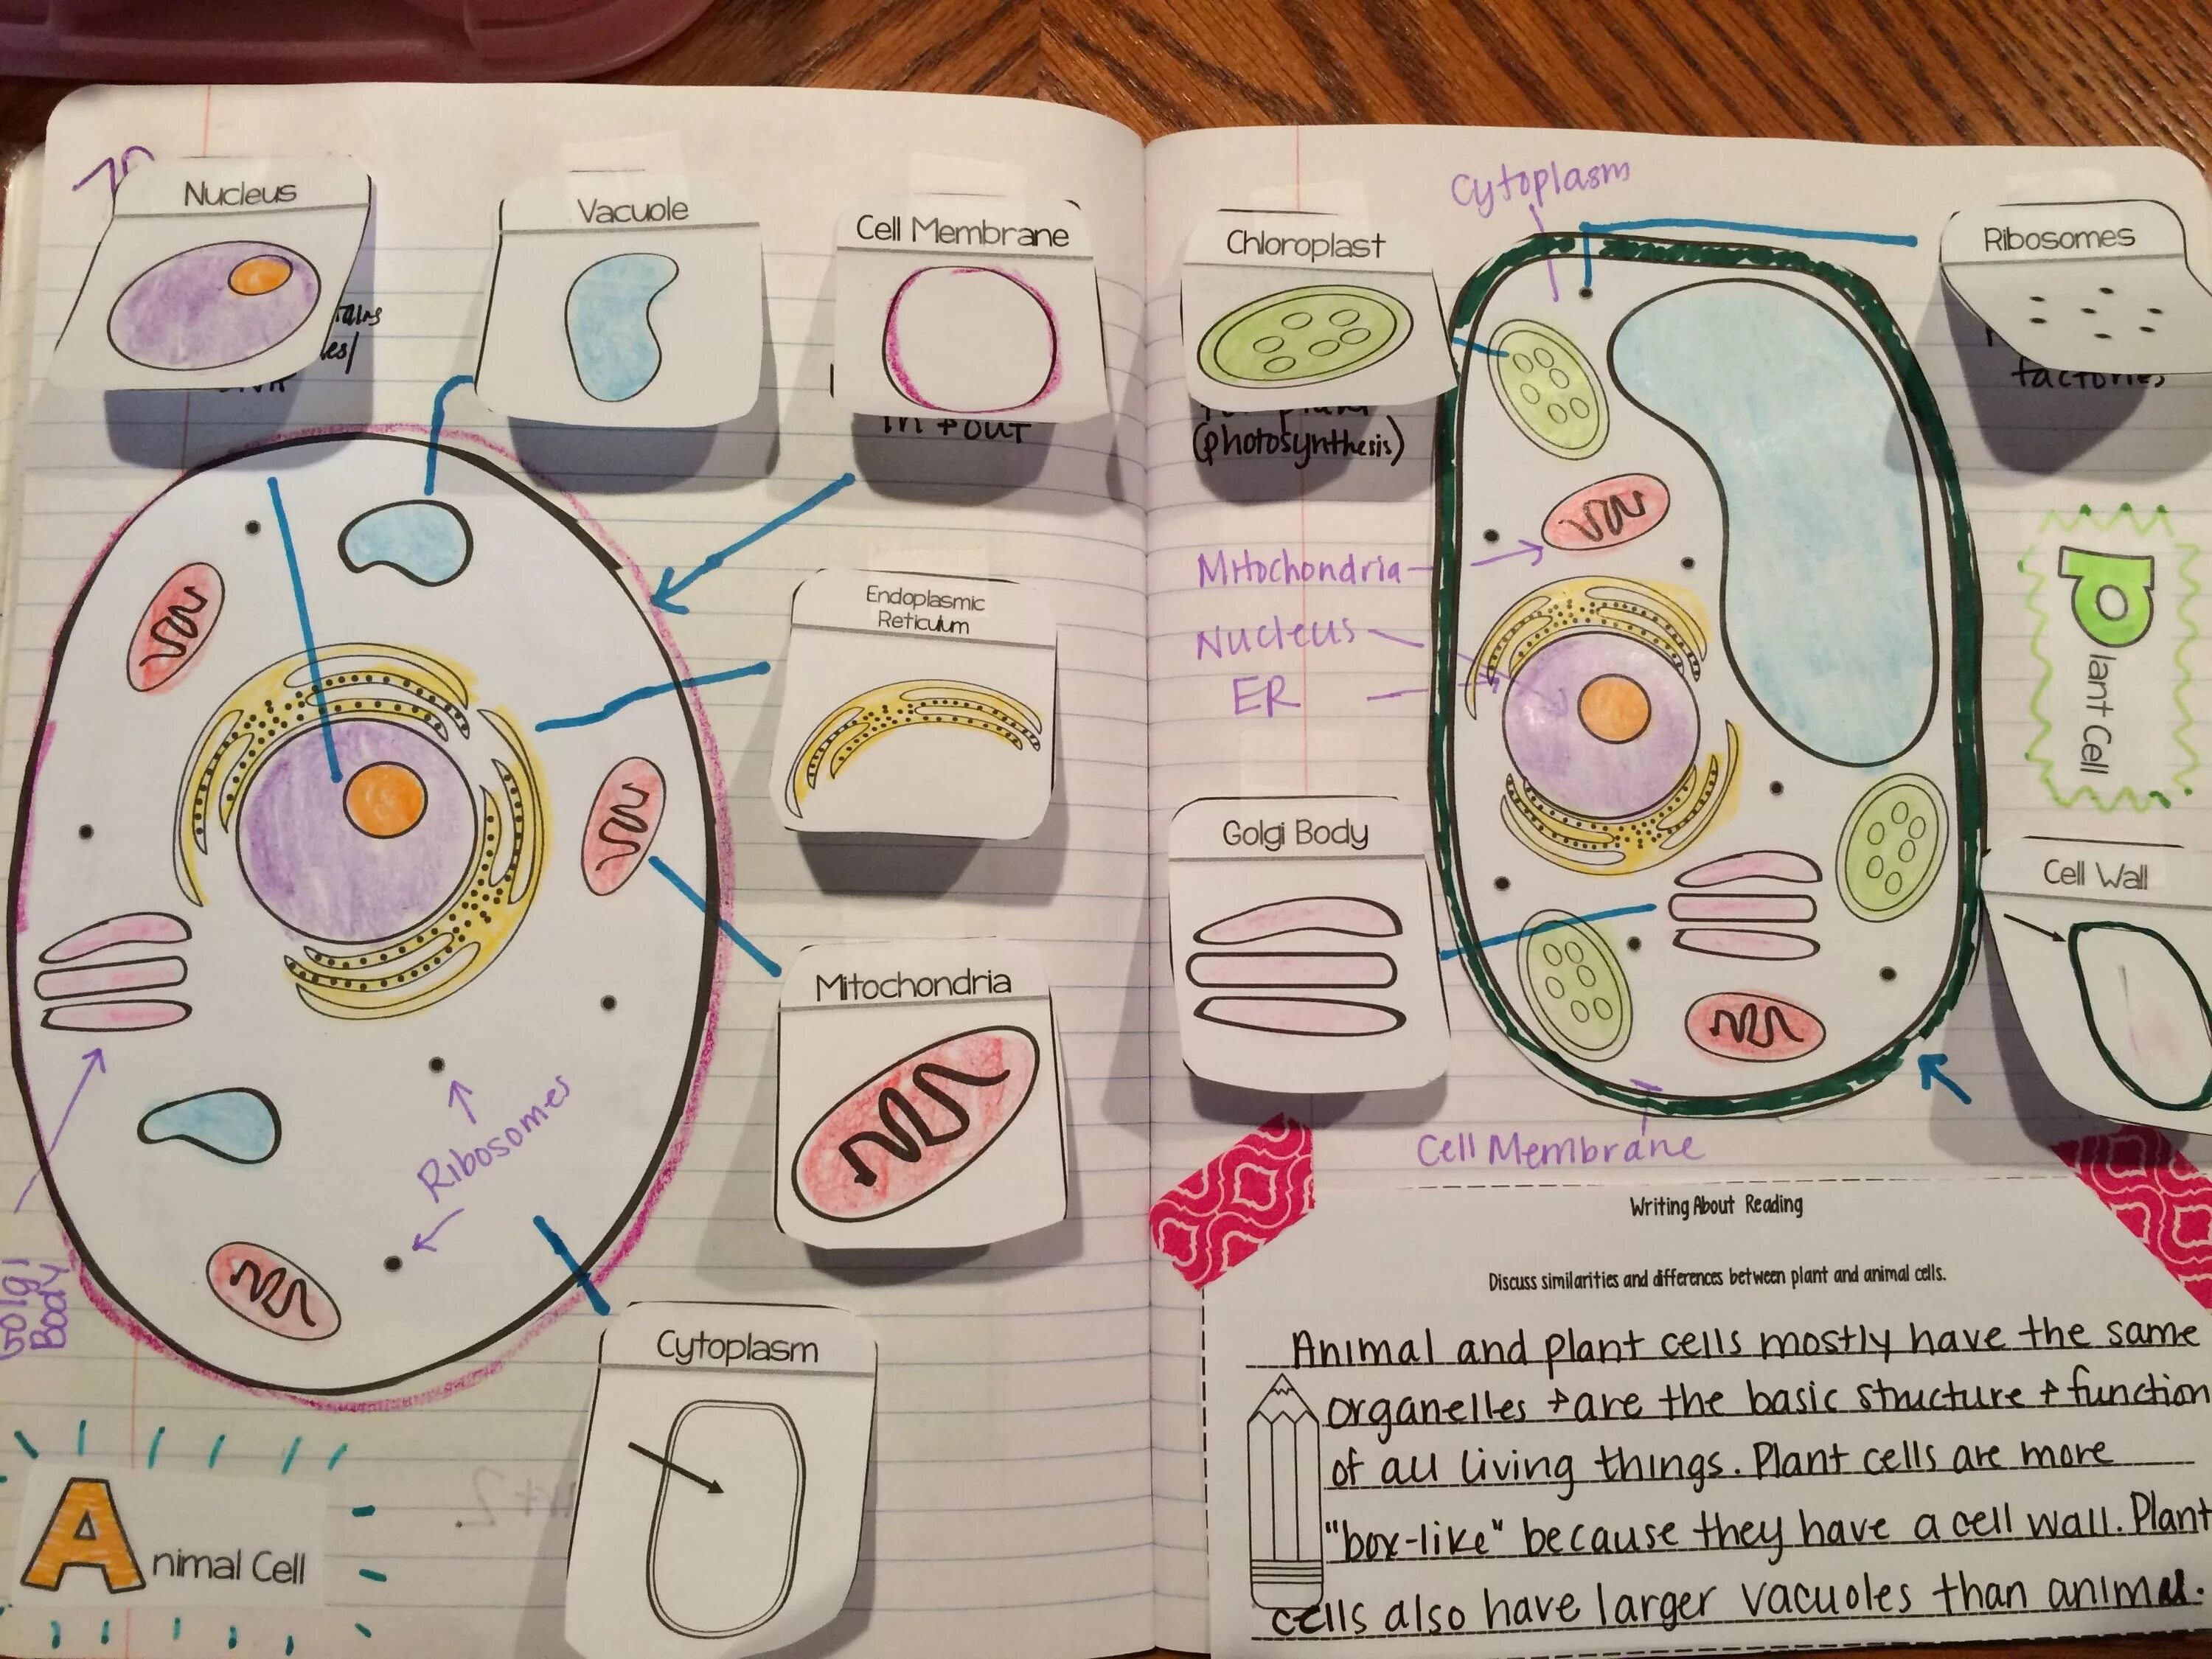 Nucleus
Vacuole
Cell Membrane
in + out
Endoplasmic
Reticulum
Mitochondria
Ribosomes
Golgi
Body
Cytoplasm
Animal Cell
Cytoplasm
Chloroplast
(photosynthesis)
Ribosomes
factories
Mitochondria
Nucleus
ER
Plant Cell
Golgi Body
Cell Wall
Cell Membrane
Writing About Reading
Discuss similarities and differences between plant and animal cells.
Animal and plant cells mostly have the same
organelles + are the basic structure + function
of all living things. Plant cells are more
"box-like" because they have a cell wall. Plant
cells also have larger vacuoles than animal.